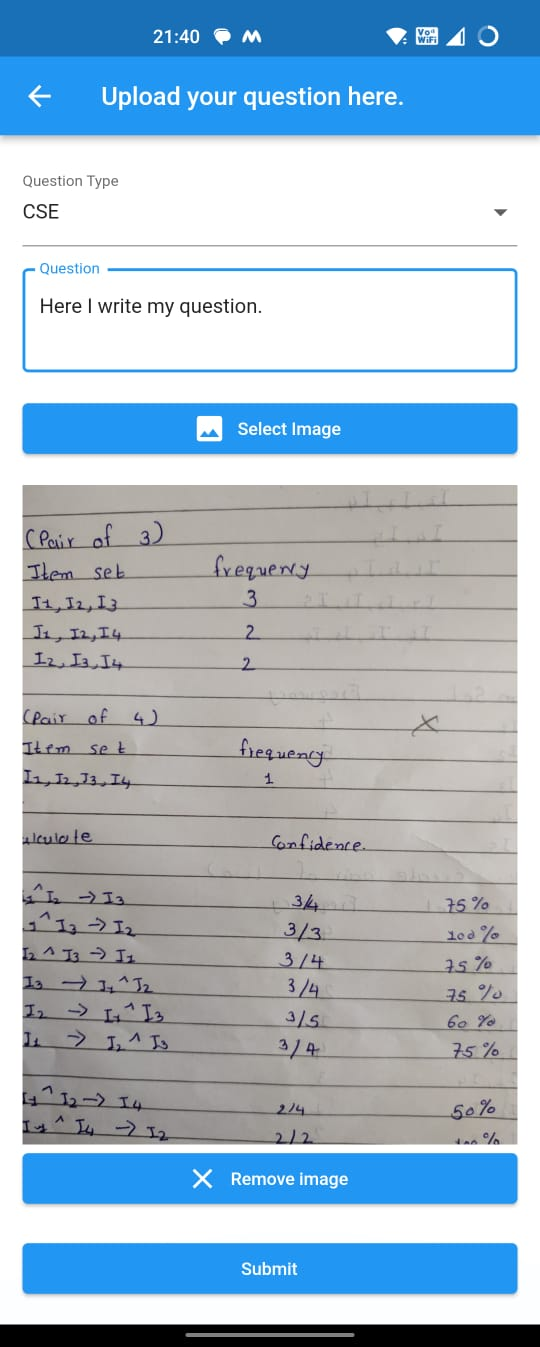 21:40
Vo))
WiFi
Upload your question here.
Question Type
CSE
Question
Here I write my question.
Select Image
(Pair of 3)
Item set frequency
I1, I2, I3 3
I1, I2, I4 2
I2, I3, I4 2
(Pair of 4)
Item set frequency
I1, I2, I3, I4 1
alculate Confidence.
I1^I2 → I3 3/4 75%
1^I3 → I2 3/3 100%
I2 ^ I3 → I1 3/4 75%
I3 → I1^I2 3/4 75%
I2 → I1^I3 3/5 60%
I1 → I2^I3 3/4 75%
I1^I2 → I4 2/4 50%
I1^I4 → I2 2/2 100%
Remove image
Submit